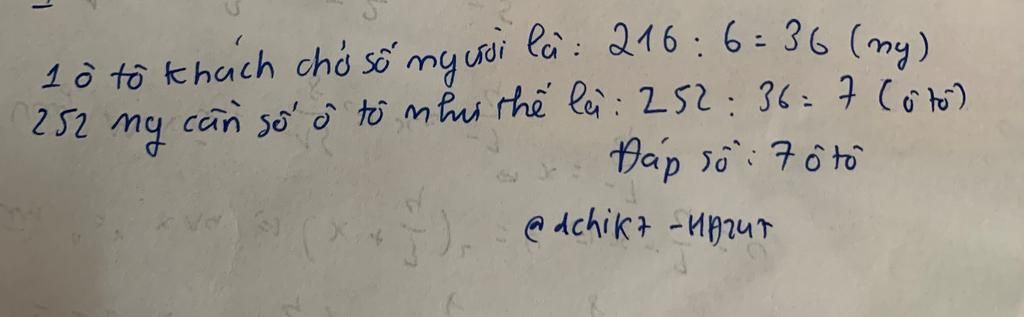 1 ô tô khách chở số người là: 216 : 6 = 36 (ng)
252 ng cần số ô tô như thế là: 252 : 36 = 7 (ô tô)
Đáp số: 7 ô tô